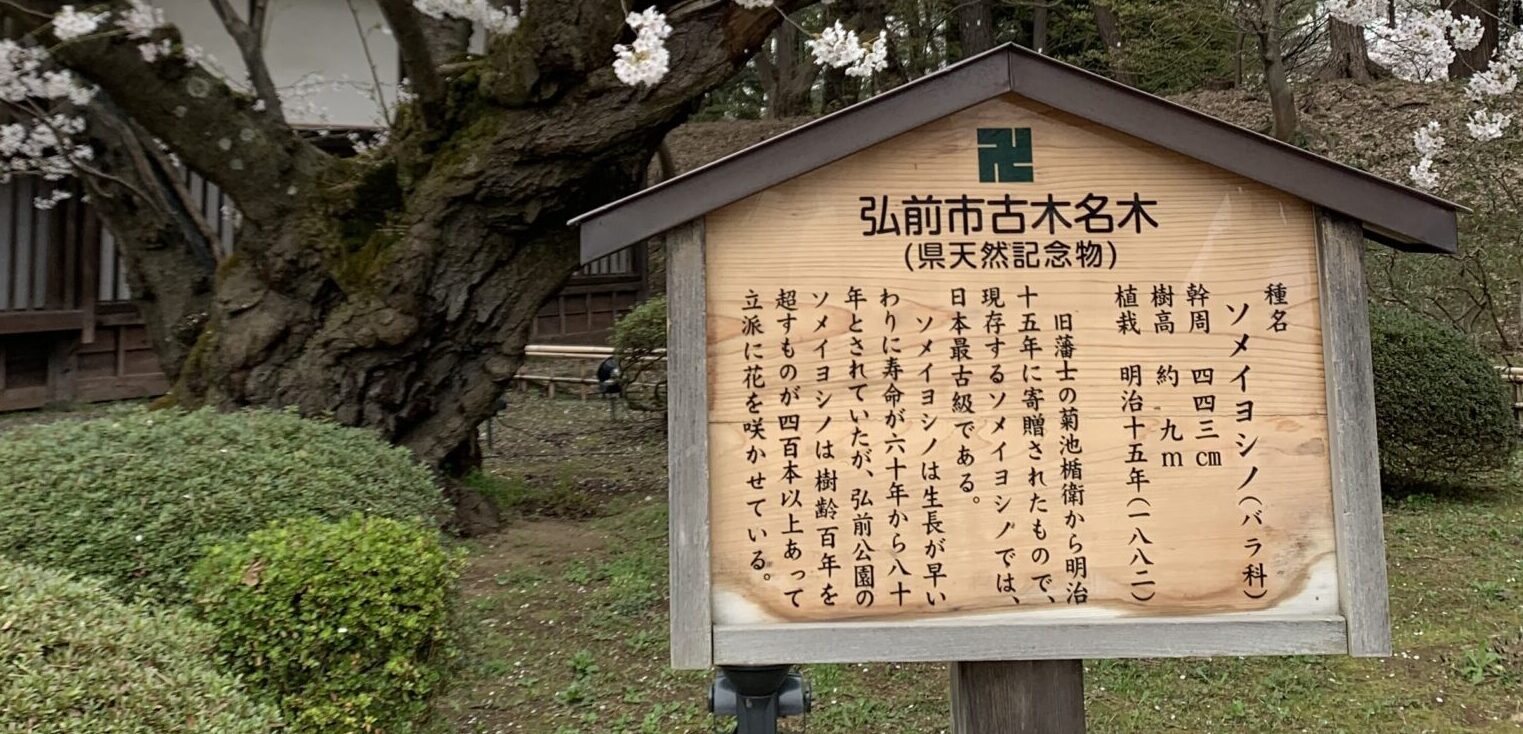 卍
弘前市古木名木
(県天然記念物)
種名
ソメイヨシノ(バラ科)
幹周 四四三cm
樹高 約 九m
植栽 明治十五年(一八八二)
旧藩士の菊池楯衛から明治
十五年に寄贈されたもので、
現存するソメイヨシノでは、
日本最古級である。
ソメイヨシノは生長が早い
わりに寿命が六十年から八十
年とされていたが、弘前公園の
ソメイヨシノは樹齢百年を
超すものが四百本以上あって
立派に花を咲かせている。